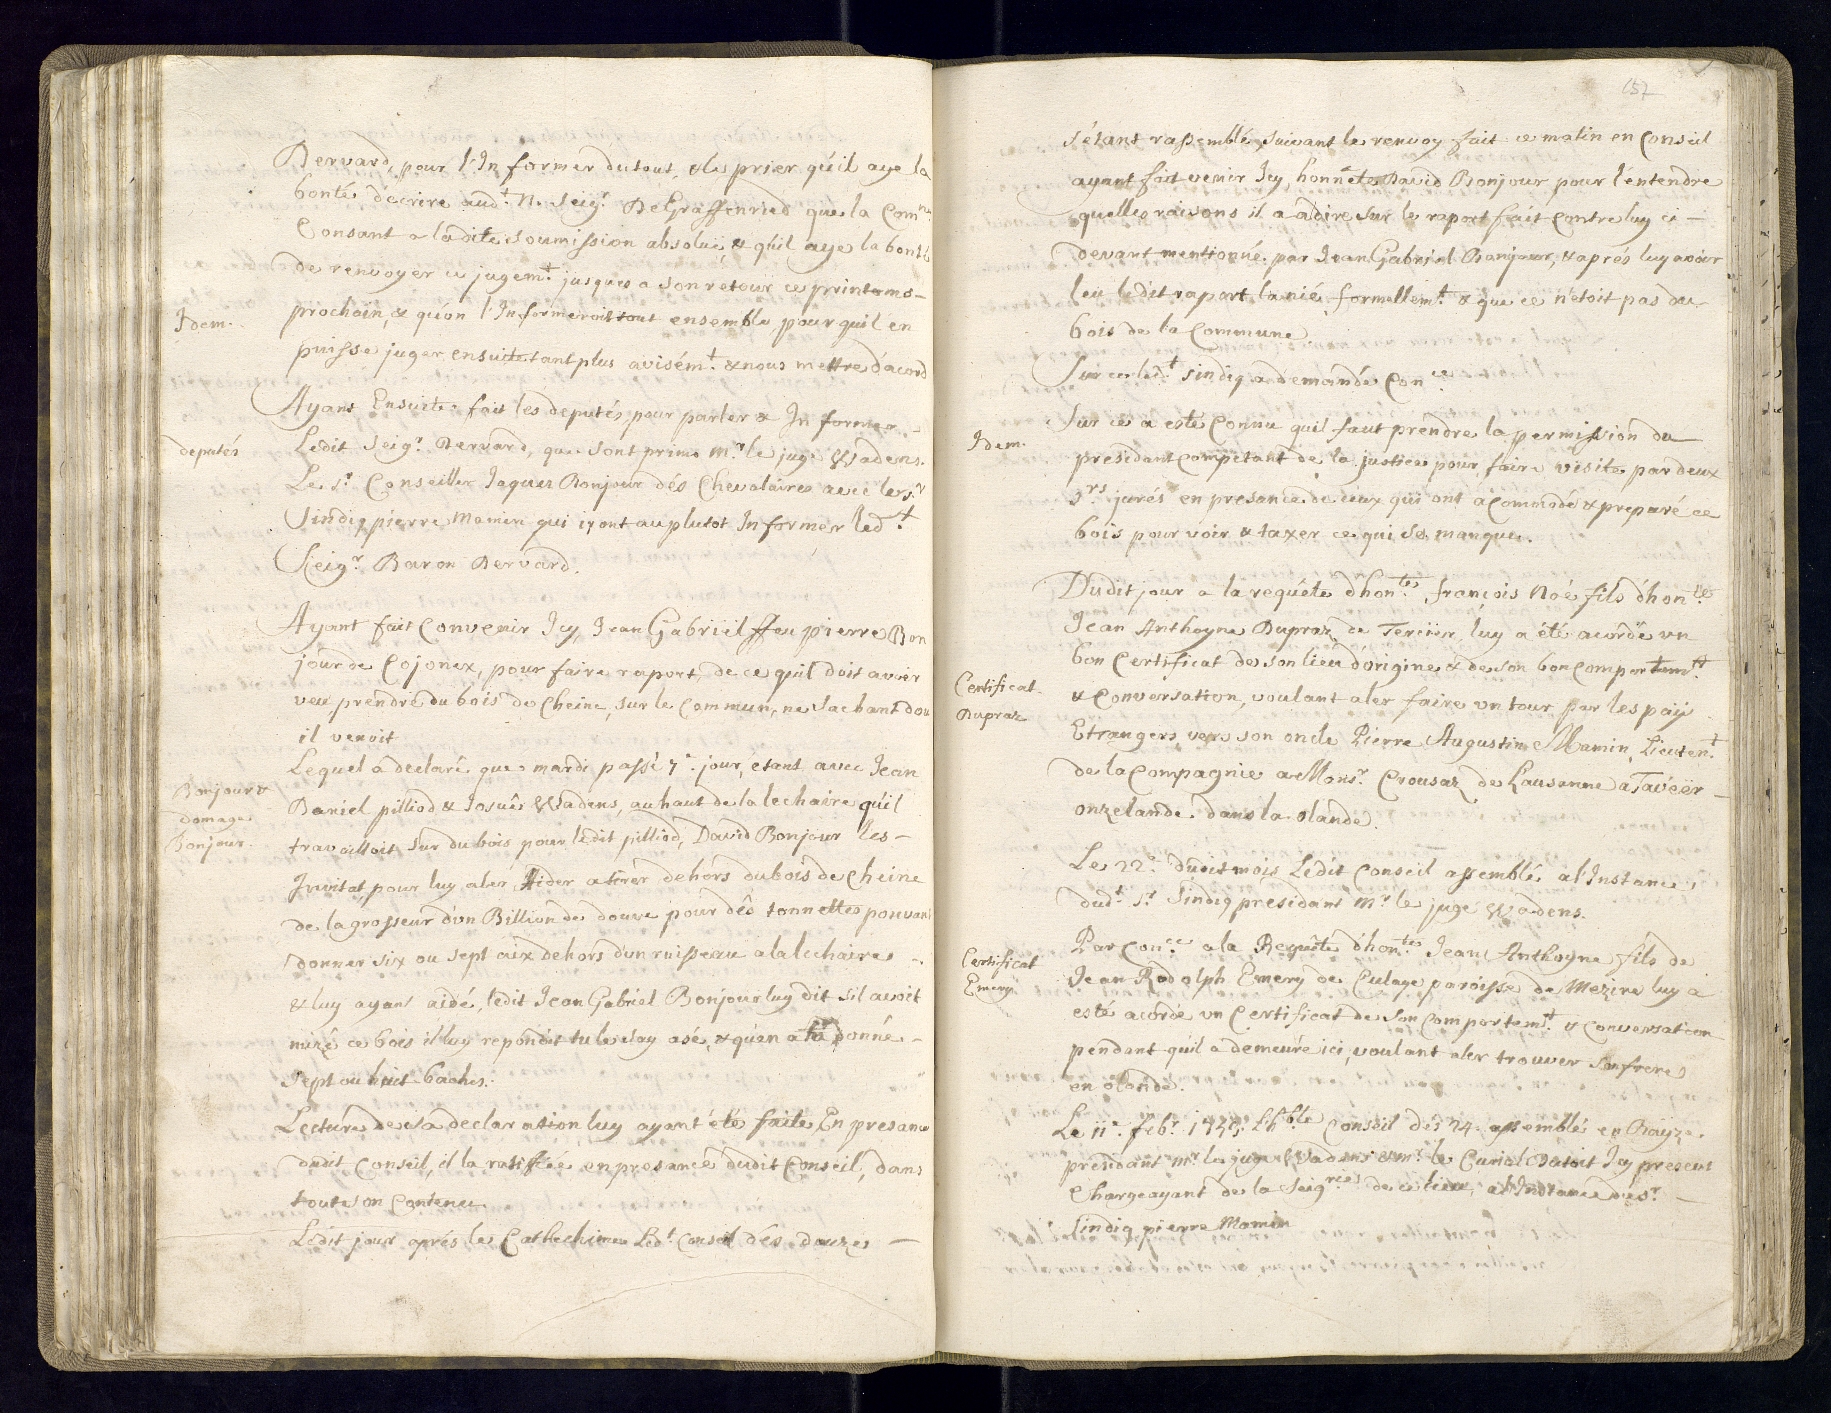 Dervard, pour l'Informer du tout, & les prier qu'il aye la
bonté d'écrire aud.t N. Seig.r DeGraffenried que la Com.ne
Consant a ladite soumission absoluë, & qu'il aye la bonté
de renvoyer ce jugem.t jusques a son retour ce printems-
Idem.
prochain, & qu'on l'Informeroit tout ensemble, pour quil en
puisse juger ensuite tant plus avisém.t & nous mettre d'acord
Ayant Ensuite fait les deputés pour parler & Informer -
deputés
Ledit Seig.r Dervard, que sont primo m.r le juge Wadens.
Le s.r Conseiller Jaques Bonjour dés Chevalaires avec le s.r
Sindiq pierre Mamin qui iront au plutot Informer led.t
Seig.r Baron Dervard.
Ayant fait Convenir Icy, Jean Gabriël ffeu pierre Bon
jour de Cojonex, pour faire raport, de ce quil doit avoir
veu prendre du bois de Cheine, sur le Commun, ne sachant dou
il venoit
Lequel a declaré que mardi passé 7.e jour, étant avec Jean
Bonjour &
domage
Bonjour.
Daniel pilliod & Josuês Wadens, au haut de la lechaire qu'il
travailloit sur du bois pour ledit pilliod, David Bonjour les -
Invitat, pour luy aler Aider a tirer dehors du bois de Cheine
de la grosseur d'un Billion de douve pour dês tonnelles pouvant
donner six ou sept aix dehors d'un ruisseau a la lechaire -
& luy ayant aidé, ledit Jean Gabriel Bonjour luy dit sil avoit
mizê ce bois il luy repondit tu le say asé, & qu'en a tu donné -
Sept ou huit baches.
Lecture de sa declaration luy ayant été faite En presance
dudit Conseil, il la ratiffiée en presance dudit Conseil, dans
tout son Contenu
Ledit jour aprés le Cathechime Led.t Conseil dés douzes -
157
s'étant rassemblé, suivant le renvoy fait ce matin en Conseil
ayant fait venir Icy, honnéte David Bonjour pour l'entendre
quelles raisons il a adire sur le raport fait Contre luy ci -
devant mentionné par Jean Gabriel Bonjour, & aprés luy avoir
leu ledit raport la nié formellem.t & que ce n'etoit pas du
bois de la Commune
Sur ce led.t sindiq a demandé Con.ce
Idem.
Sur ce a esté Connu quil faut prendre la permission du
presidant Compétant de la justice pour faire visite par deux
s.rs jurés en presance de ceux qui ont acomodé & preparé ce
bois pour voir & taxer ce qui se manque.
Dudit jour a la requéte d'hon.te françois Noé fils d'hon.te
Jean Anthoyne Dupraz de Terciier luy a été acordé un
bon Certificat de son lieu d'origine & de son bon Comportem.t
Certificat
Dupraz
& Conversation, voulant aler faire un tour par les païs
Etrangers vers son oncle Pierre Augustin Mamin, Lieuten.t
de la Compagnie a Mons.r Crousaz de Lausanne a Tavéer -
onzelande dans la olande.
Le 22.e dudit mois Ledit Conseil assemblé a l'Instance
dud.t s.r Sindiq presidant m.r le juge Wadens.
Par Con.ce a la Requête d'hon.te Jean Anthoyne fils de
Certificat
Emery
Jean Rodolph Emery de Culaye paroisse de Mezire luy a
esté acordé un Certificat de son Comportem.t & Conversation
pendant quil a demeuré ici, voulant aler trouver son frere
en olande.
Le 11.e feb.r L'h.ble Conseil dés 24 assemblé en
presidant m.r le juge Wadens & m.r le Icy present
Chargeayant de la Seig.rie de ce lieu, a l'Instance du s.r -
Sindiq pierre Mamin